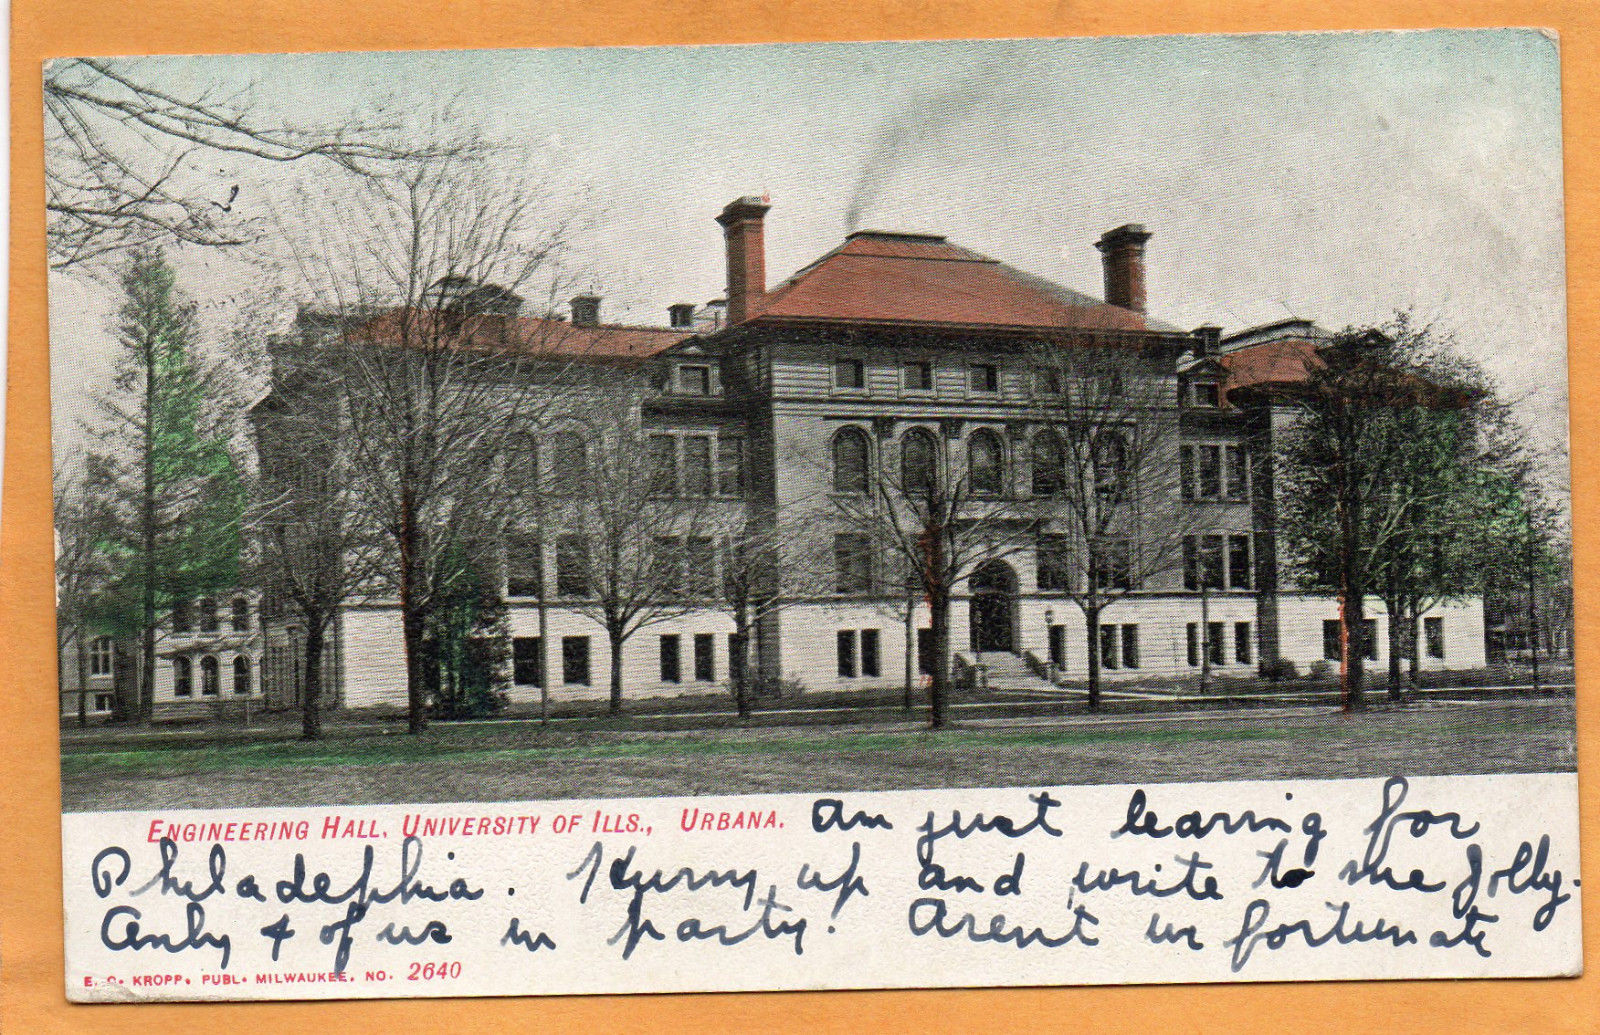 ENGINEERING HALL, UNIVERSITY OF ILLS., URBANA. Am just leaving for
Philadelphia. Hurry up and write to me Jolly.
Only 4 of us in party. Arent we fortunate
E. C. KROPP, PUBL. MILWAUKEE. NO. 2640